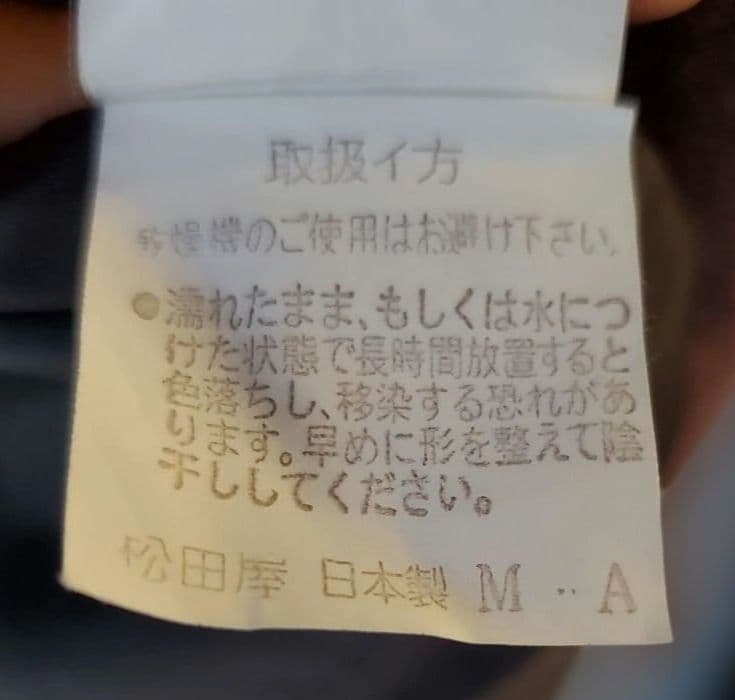 取扱イ方
乾燥機のご使用はお避け下さい。
●濡れたまま、もしくは水につ
けた状態で長時間放置すると
色落ちし、移染する恐れがあ
ります。早めに形を整えて陰
干ししてください。
松田屋 日本製 M ·· A